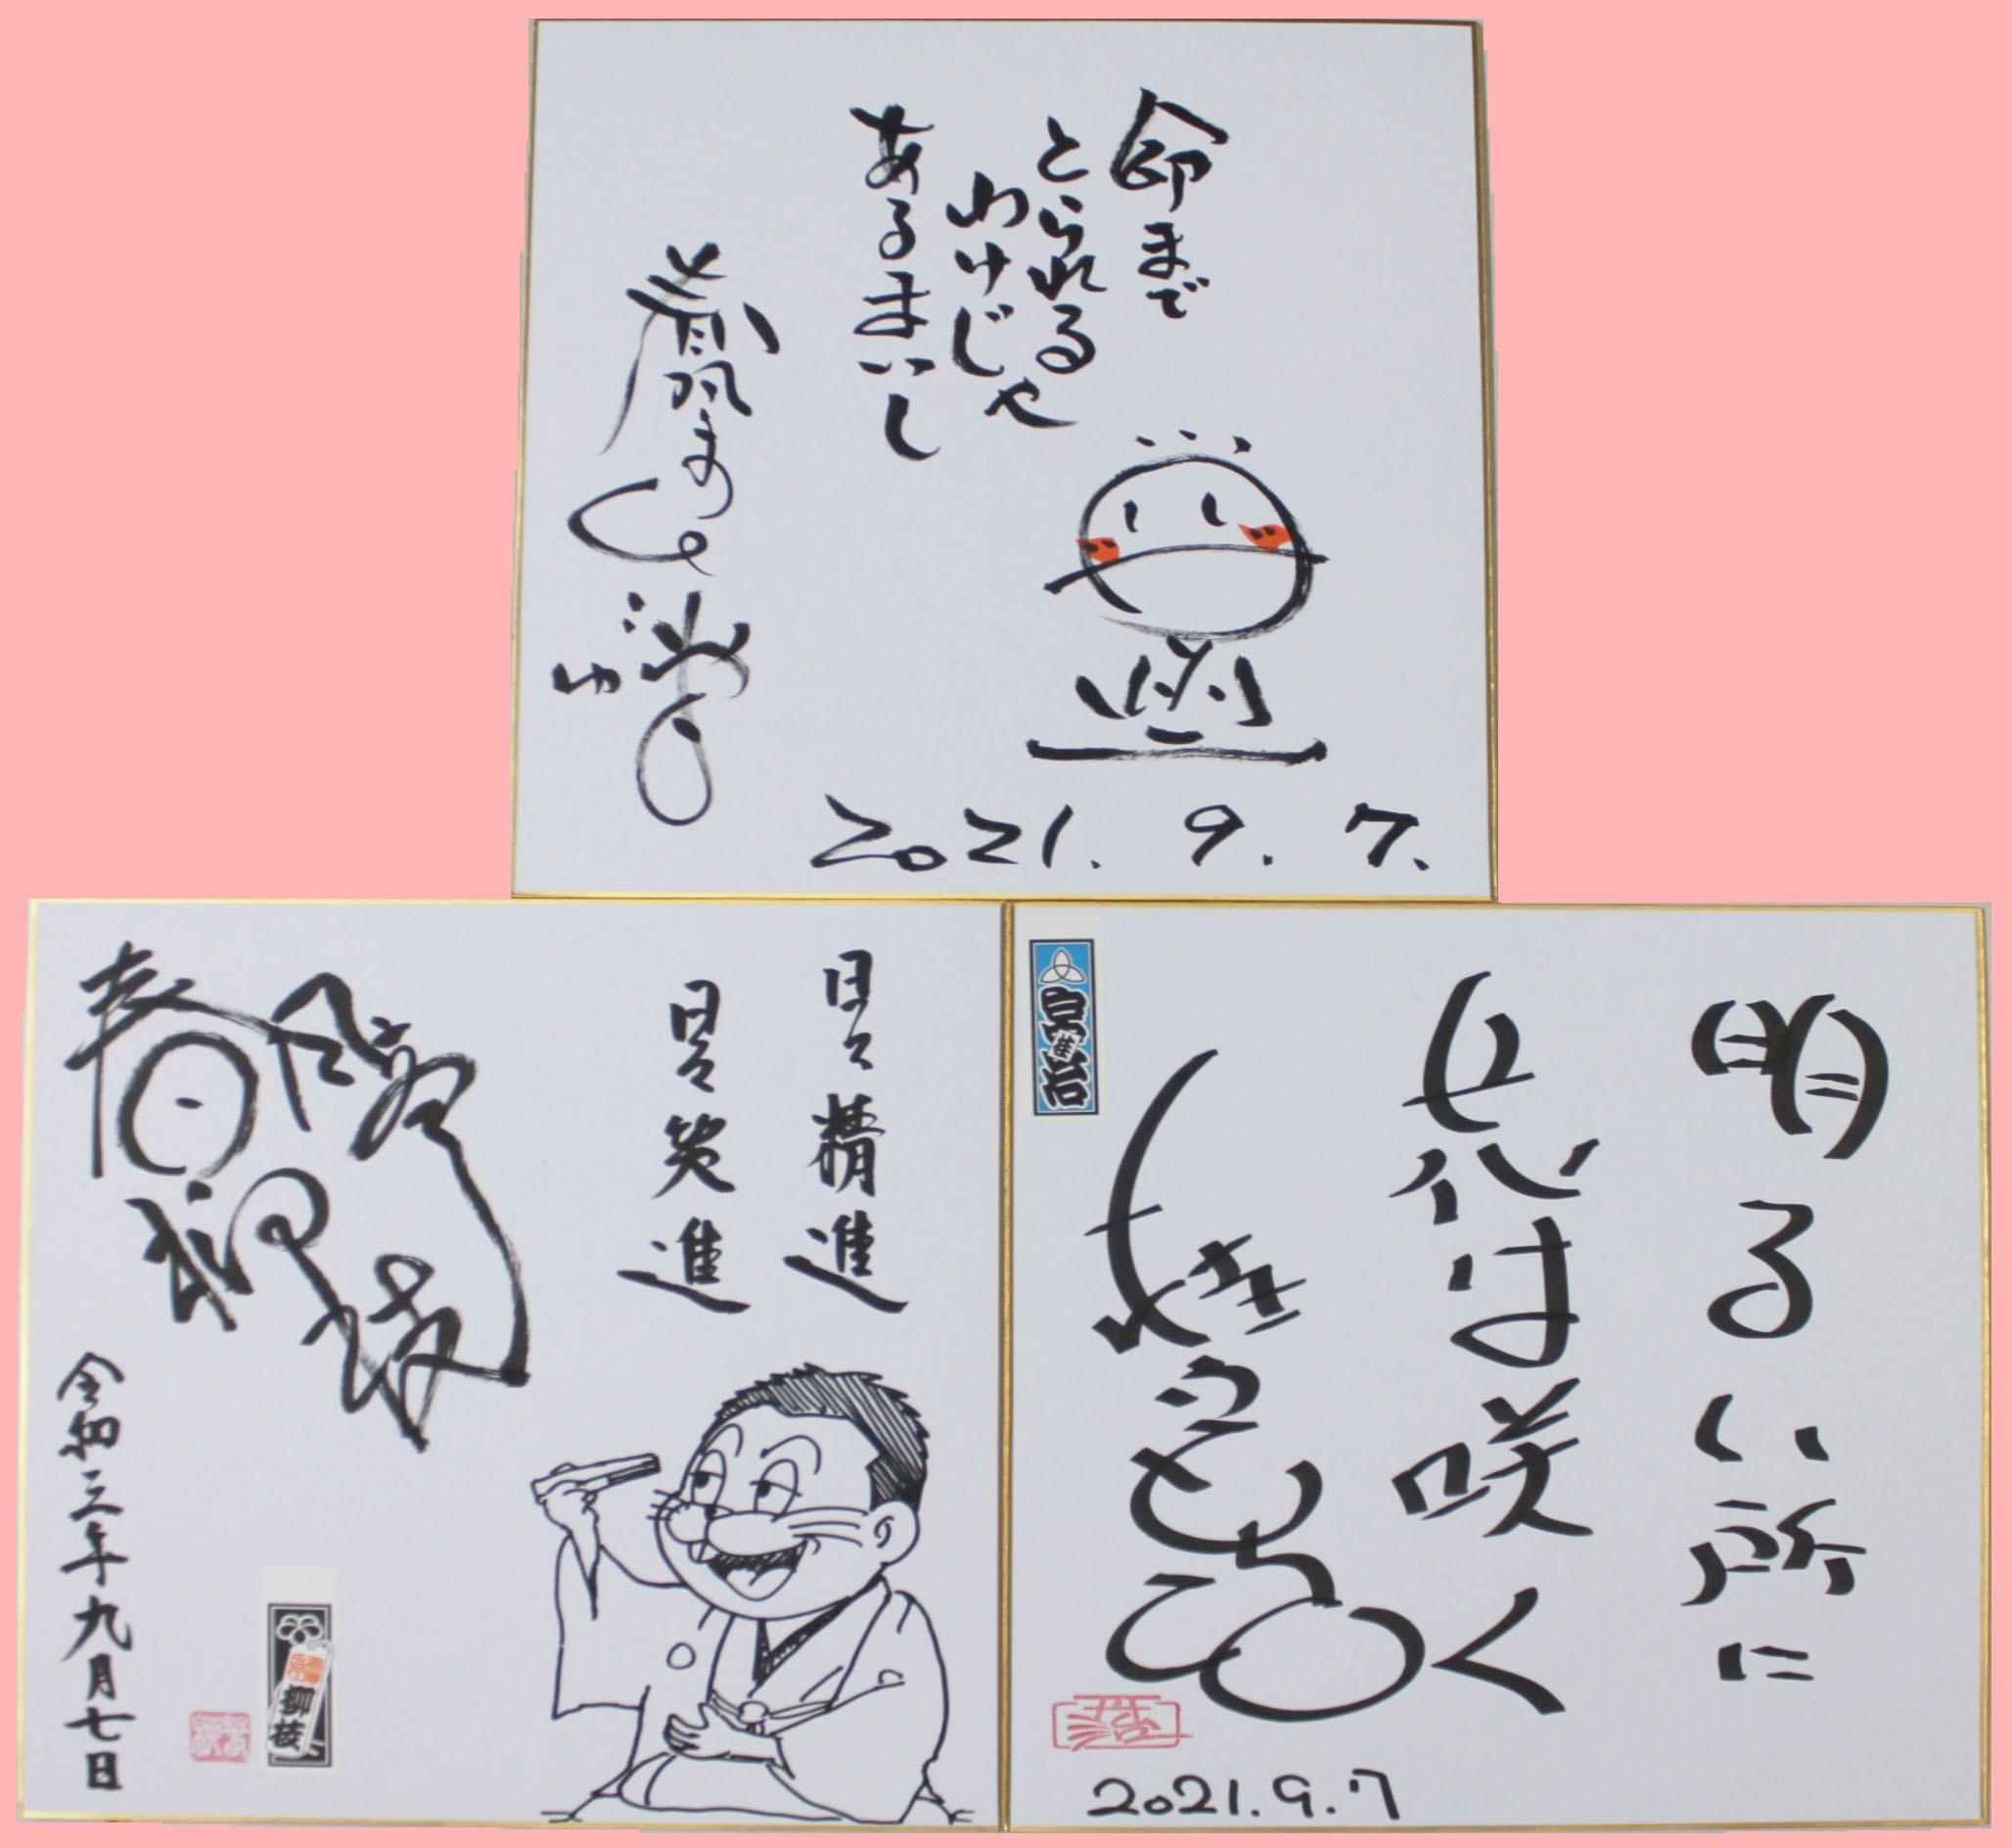 命まで
とられる
わけじゃ
あるまいし
2021. 9. 7.
日々精進
日々笑進
春風亭
柳枝
令和三年九月七日
柳枝
明るい所に
花は咲く
宮治
2021.9.7